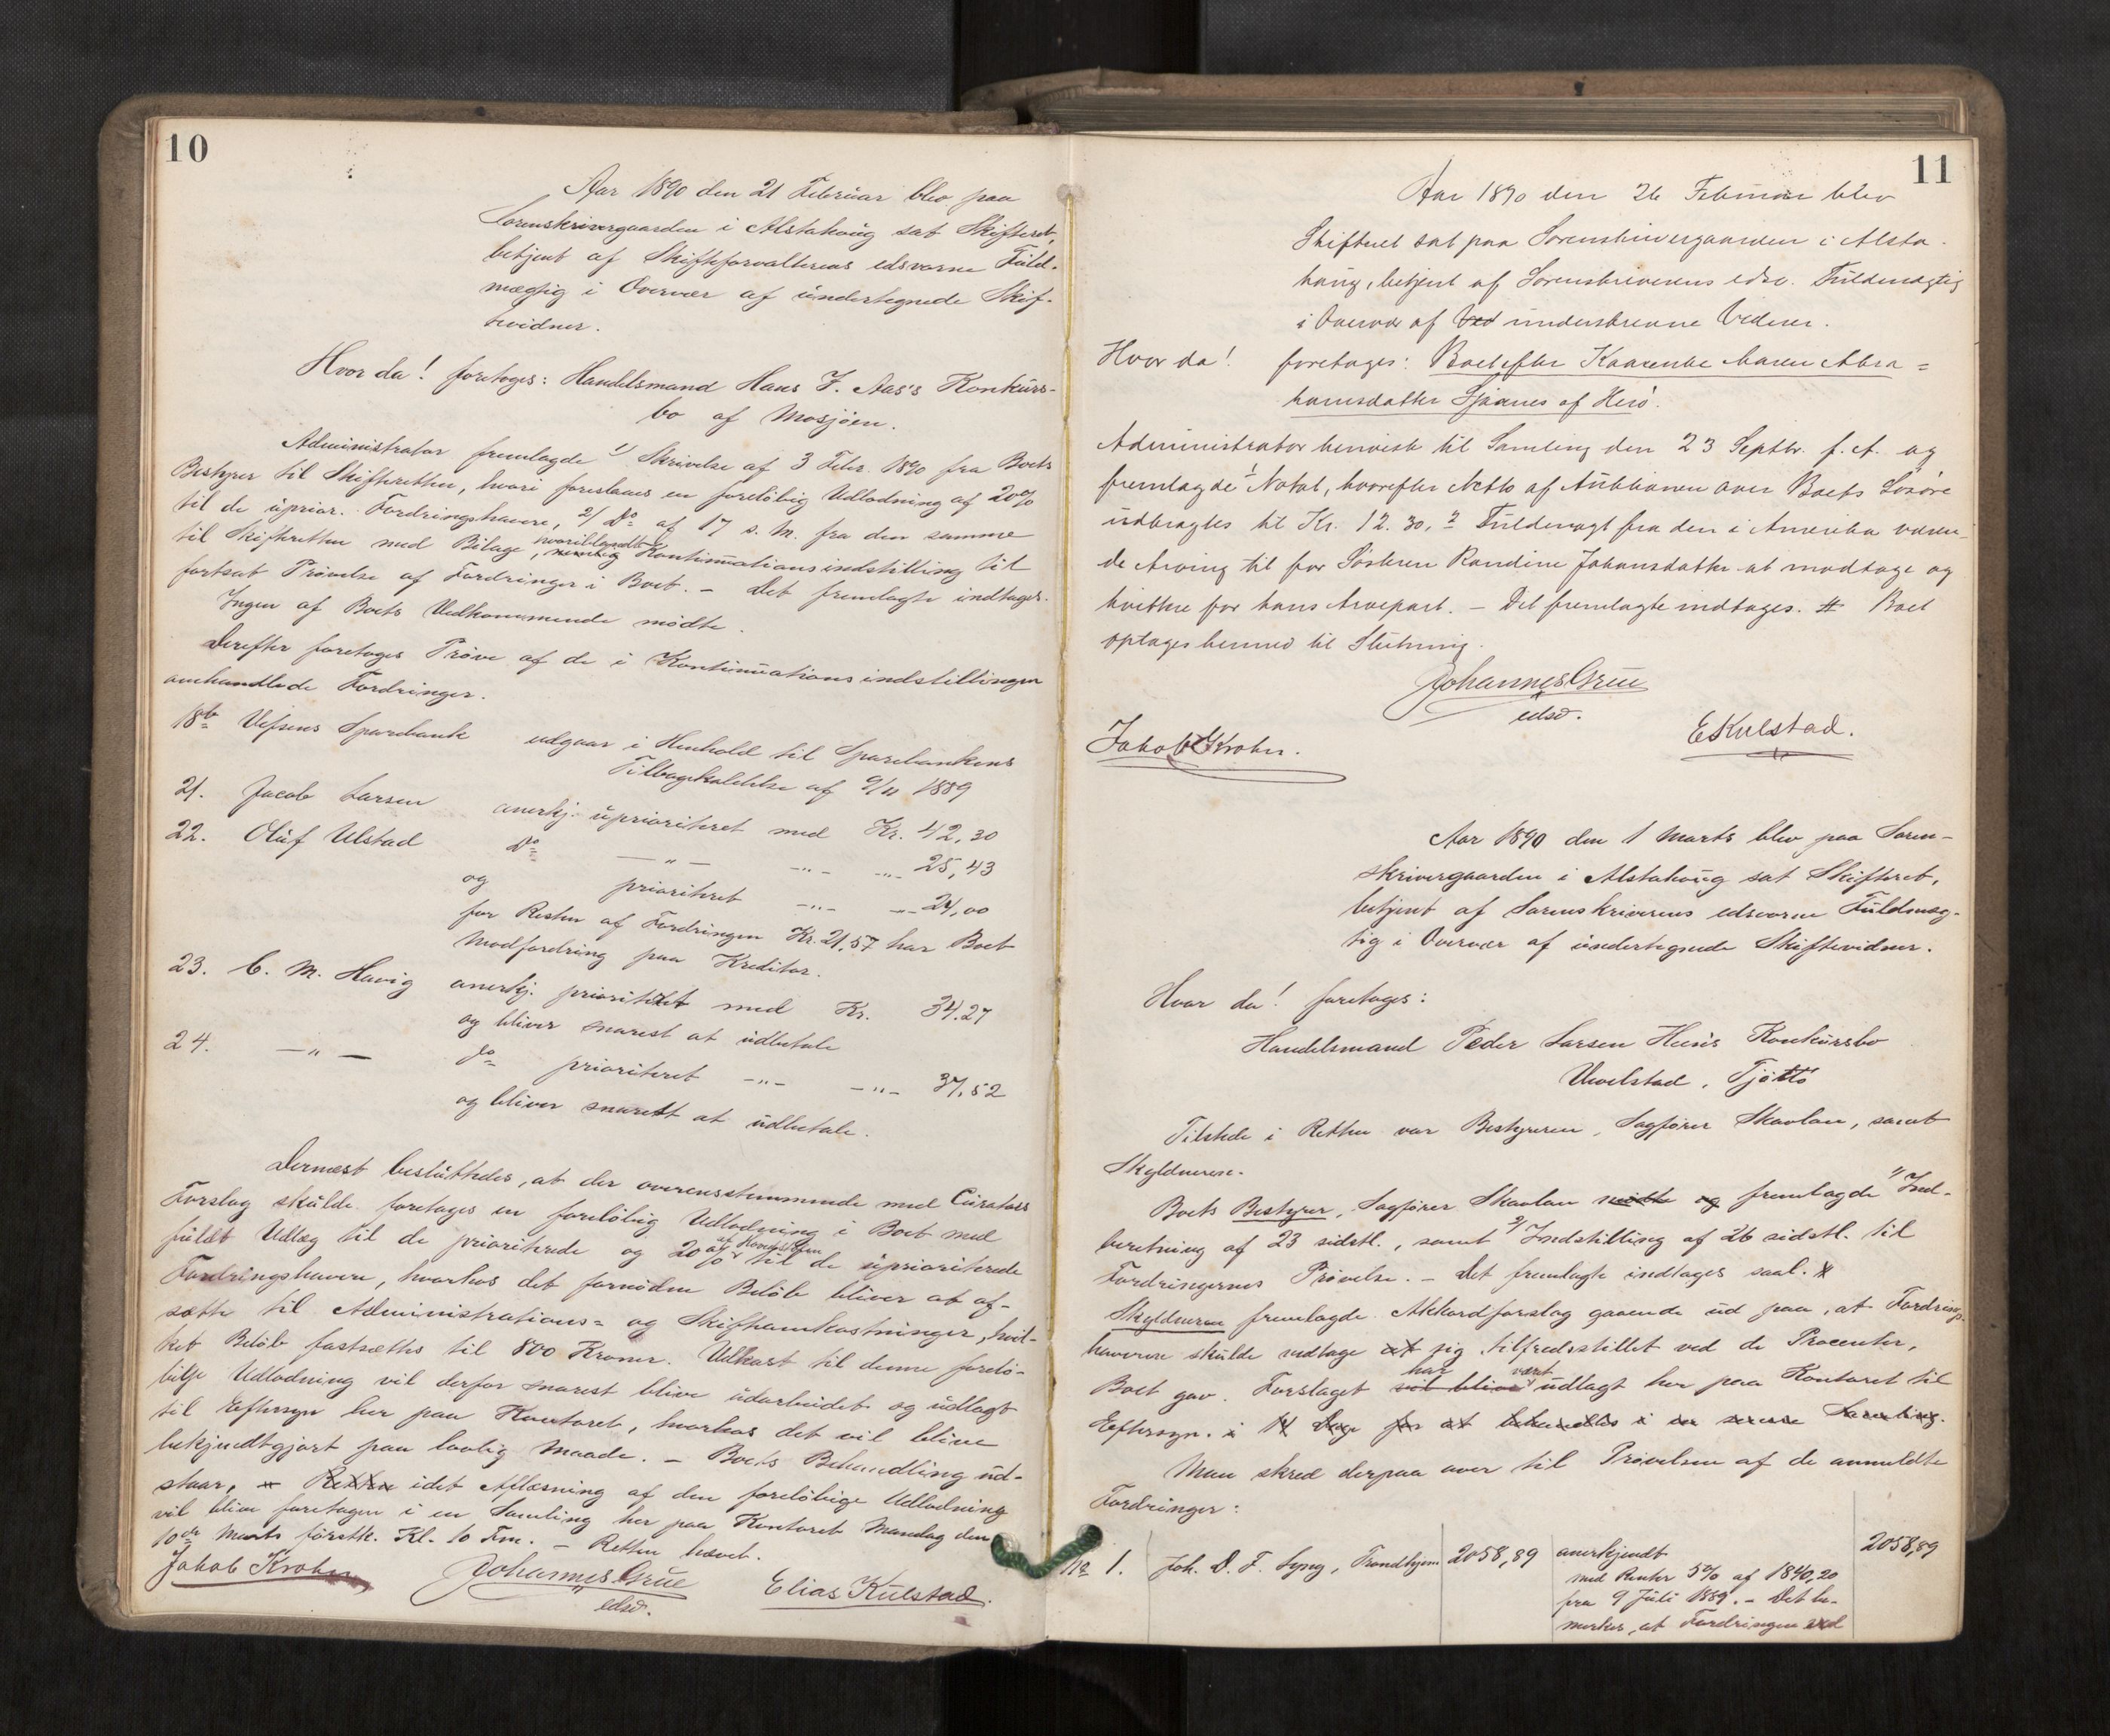 10
Aar 1890 den 21 Februar blev paa
Sorenskrivergaarden i Alstahoug sat Skifteret,
betjent af Skifteforvalterens edsvorne Fuld-
mægtig i Overvær af undertegnede Skif-
tevidner.
Hvor da! foretoges: Handelsmand Hans J. Aas's Konkurs-
bo af Mosjøen.
Administrator fremlagde 1/ Skrivelse af 3 Febr. 1890 fra Boets
Bestyrer til Skifteretten, hvori foreslaaes en foreløbig Udlodning af 20%
til de uprior. Fordringshavere, 2/ Do af 17 s. M. fra den samme
til Skifteretten med Bilage, hvoriblandt Kontinuationsindstilling til
fortsat Prøvelse af Fordringer i Boet. – Det fremlagte indtages.
Ingen af Boets Vedkommende mødte.
Derefter foretoges Prøve af de i Kontinuationsindstillingen
omhandlede Fordringer.
18b Vefsens Sparebank udgaar i Henhold til Sparebankens
Tilbagekaldelse af 9/11 1889
21. Jacob Larsen anerkj. uprioriteret med Kr. 42,30
22. Oluf Ulstad Do —"— -"- -"- 25,43
og prioriteret -"- -"- 24,00
for Resten af Fordringen Kr. 21,57 har Boet
Modfordring paa Kreditor.
23. C. M. Havig anerkj. prioritet med Kr. 34.27
og bliver snarest at udbetale
24. —"— Do prioriteret -"- -"- 37,52
og bliver snarest at udbetale.
Dernæst besluttedes, at der overensstemmende med Curators
Forslag skulde foretages en foreløbig Udlodning i Boet med
fuldt Udlæg til de prioriterede og 20% til de uprioriterede
Fordringshavere, hvorhos det fornødne Beløb bliver at af-
sætte til Administrations= og Skifteomkostninger, hvil-
ket Beløb fastsættes til 800 Kroner. Udkast til denne forelø-
bige Udlodning vil derfor snarest blive udarbeidet og udlagt
til Eftersyn her paa Kontoret, hvorhos det vil blive
bekjendtgjort paa lovlig Maade. – Boets Behandling ud-
staar, Retten idet Aflæsning af den foreløbige Udlodning
vil blive foretagen i en Samling her paa Kontoret Mandag den
10de Marts førstk. Kl. 10 Fm. – Retten hævet.
Jakob Krohn Johannes Grue Elias Kulstad.
edsv.
11
Aar 1890 den 26 Februar blev
Skifteret sat paa Sorenskrivergaarden i Alsta-
houg, betjent af Sorenskriverens edsv. Fuldmægtig
i Overvær af Ved underskrevne Vidner.
Hvor da! foretages: Boet efter Kaarenbe Maren Abra=
hamsdatter af Herø.
Administrator henviste til Samling den 23 Septbr. f. A. og
fremlagde 1 Notat, hvorefter Netto af Auktionen over Boets Løsøre
udbragtes til Kr. 12.30, 2 Fuldmagt fra den i Amerika væren-
de Arving til for Søsteren Randine Johansdatter at modtage og
kvittere for hans Arvepart. – Det fremlagte indtages. Boet
optages hermed til Slutning.
Johannes Grue
edsv.
Jakob Krohn. E Kulstad.
Aar 1890 den 1 Marts blev paa Soren-
skrivergaarden i Alstahoug sat Skifteret,
betjent af Sorenskriverens edsvorne Fuldmæg-
tig i Overvær af undertegnede Skiftevidner.
Hvor da! foretoges:
Handelsmand Peder Larsen Konkursbo
Tjøttø
Tilstede i Retten var Bestyreren, Sagfører Skavlan, samt
Skyldneren.
Boets Bestyrer, Sagfører Skavlan mødte og fremlagde 1/ Ind-
beretning af 23 sidstl., samt 2/ Indstilling af 26 sidstl. til
Fordringernes Prøvelse. – Det fremlagte indtages saal.
Skyldneren fremlagde Akkordforslag gaaende ud paa, at Fordrings-
haverne skulde modtage sig tilfredsstillet ved de Procenter,
Boet gav. Forslaget vil blive har været udlagt her paa Kontoret til
Eftersyn. i 14 Dage for at behandles i en senere Samling.
Man skred derpaa over til Prøvelsen af de anmeldte
Fordringer:
No 1. Joh. D. F. Lyng, Trondhjem 2058,89 anerkjendt 2058,89
med Renter 5% af 1840,20
fra 9 Juli 1889. – Det be-
merkes, at Fordringen